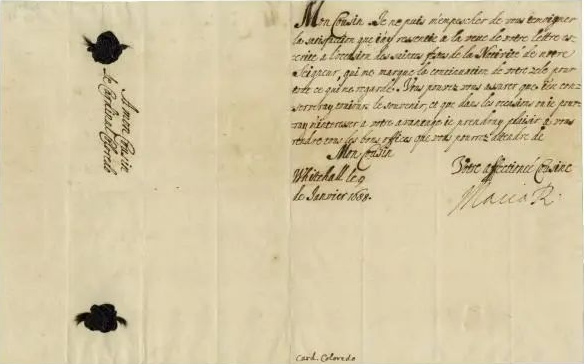 Mon Cousin. Je ne puis m'empescher de vous tesmoigner
la satisfaction que j'ay ressentie a la veue de vôtre lettre es-
crite à l'occasion des saintes festes de la Nativité de nôtre
Seigneur, qui ne marque la continuation de votre zele pour
tout ce qui me regarde. Vous pouvez vous assurer que j'en con-
serveray toujours le souvenir, et que dans les occasions ou je pour-
ray m'interesser a votre avantage je prendray plaisir à vous
rendre tous les bons offices que vous pourrez attendre de
Mon Cousin
Votre affectionée Cousine
Whitehall le 9
de Janvier 1688.
Maria R.
A mon Cousin
le Cardinal Coloredo
Card. Coloredo